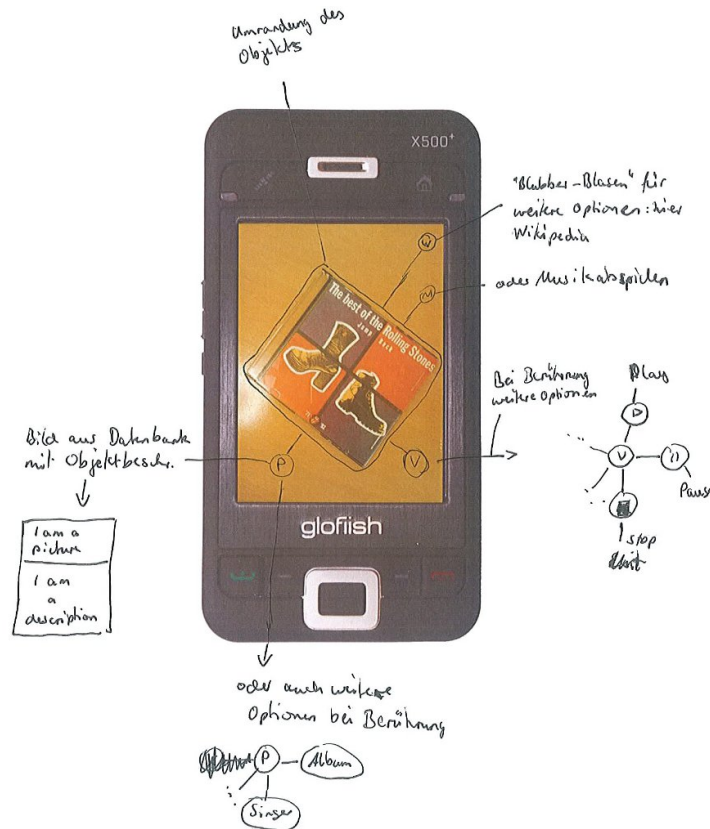 Umrandung des
Objekts
X500+
"Blubber-Blasen" für
weitere Optionen: hier
Wikipedia
W
M
oder Musikabspielen
The best of the Rolling Stones
Bei Berührung
weitere Optionen
Play
V
Pause
Stop
Bild aus Datenbank
mit Objektbeschr.
P
V
I am a
picture
I am
a
description
glofiish
oder auch weitere
Optionen bei Berührung
P
Album
Singer